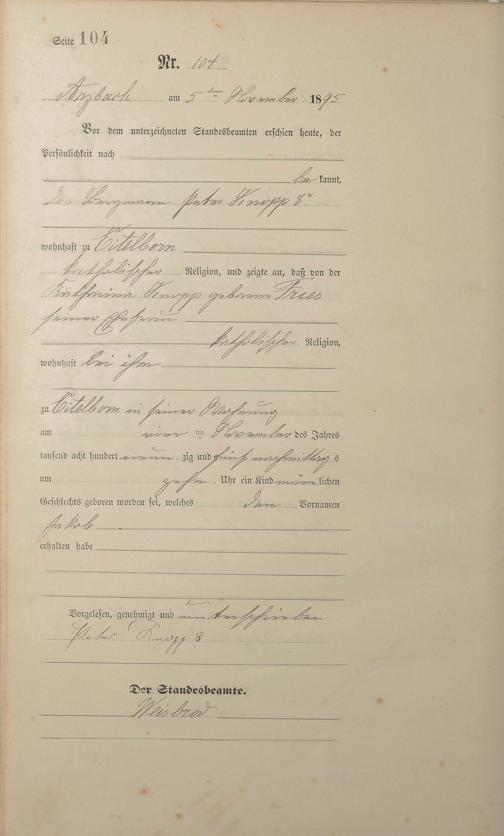 Seite 104
Nr. 104
Arzbach am 5ten November 1895
Vor dem unterzeichneten Standesbeamten erschien heute, der
Persönlichkeit nach
be kannt,
der Bergmann Peter Knopp 8r
wohnhaft zu Eitelborn
katholischer Religion, und zeigte an, daß von der
Katharina Knopp geborene Fries
seiner Ehefrau
katholischer Religion,
wohnhaft bei ihm
zu Eitelborn in seiner Wohnung
am vier ten November des Jahres
tausend acht hundert neun zig und fünf nachmittag s
um zehn Uhr ein Kind männ lichen
Geschlechts geboren worden sei, welches den Vornamen
Jakob
erhalten habe
Vorgelesen, genehmigt und unterschrieben
Peter Knopp 8
Der Standesbeamte.
Weisbrod